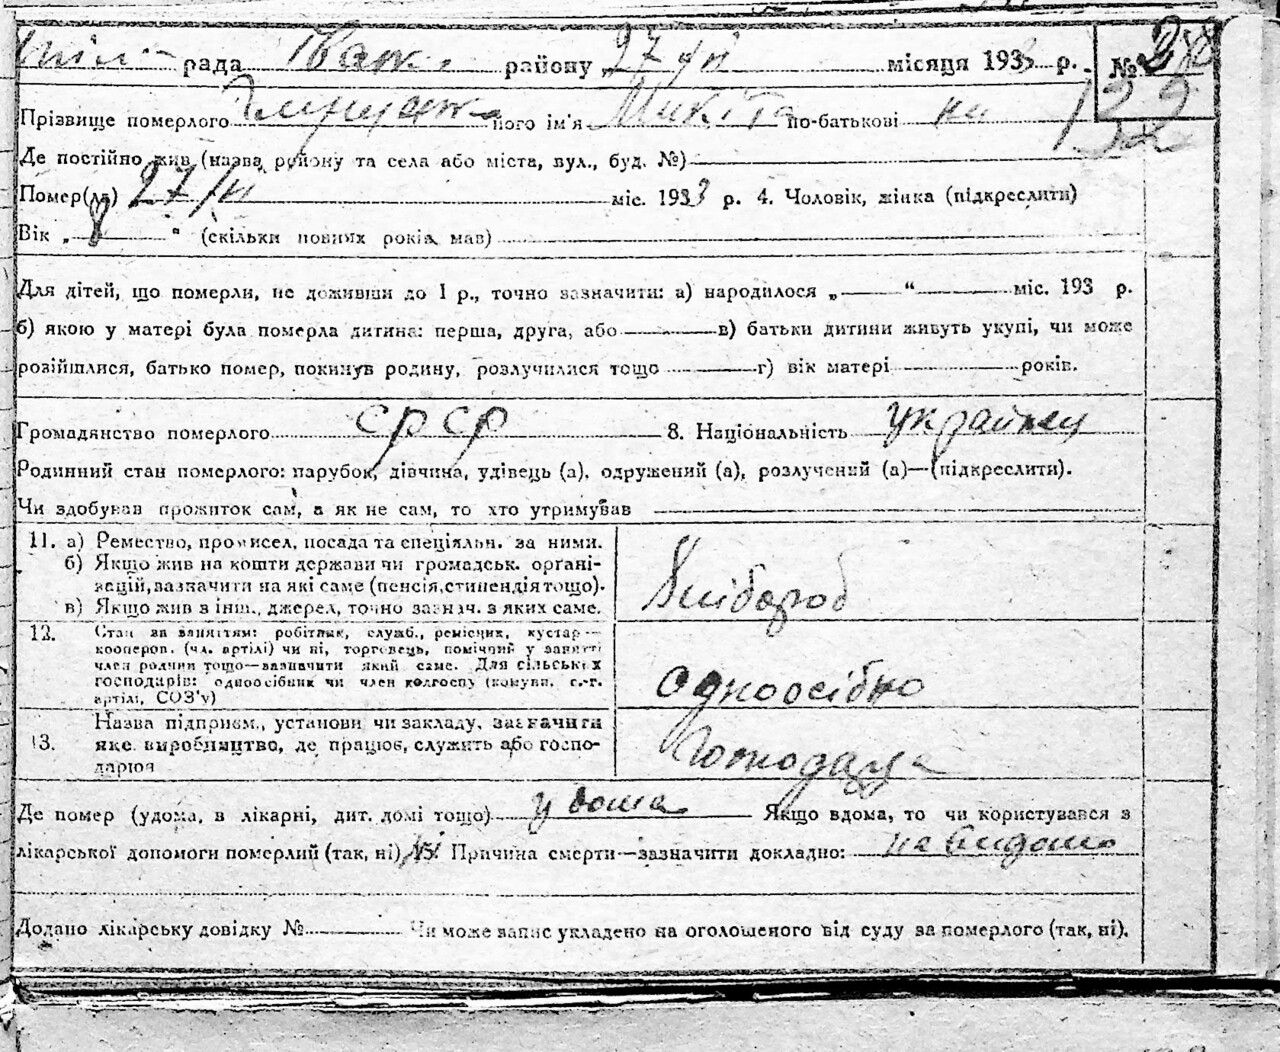 рада району 27/VI місяця 1933 р. №
Прізвище померлого його ім'я Микита по-батькові
Де постійно жив (назва району та села або міста, вул., буд. №)
Помер(ла) 27/VI міс. 1933 р. 4. Чоловік, жінка (підкреслити)
Вік „ 8 " (скільки повних років мав)
Для дітей, що померли, не доживши до 1 р., точно зазначити: а) народилося „ “ міс. 193 р.
б) якою у матері була померла дитина: перша, друга, або в) батьки дитини живуть укупі, чи може
розійшлися, батько помер, покинув родину, розлучилися тощо г) вік матері років.
Громадянство померлого СРСР 8. Національність українец
Родинний стан померлого: парубок, дівчина, удівець (а), одружений (а), розлучений (а)—(підкреслити).
Чи здобував прожиток сам, а як не сам, то хто утримував
11. а) Ремество, промисел, посада та спеціяльн. за ними.
б) Якщо жив на кошти держави чи громадськ. орґані-
зацій, зазначити на які саме (пенсія, стипендія тощо).
в) Якщо жив з інш., джерел, точно зазнач. з яких саме.
хлібороб
12. Стан за заняттям: робітник, служб., ремісник, кустар—
кооперов. (чл. артілі) чи ні, торговець, помічний у занятті
член родини тощо—зазначити який саме. Для сільських
господарів: одноосібник чи член колгоспу (комуни, с.-г.
артілі, СОЗ'у)
одноосібно
13. Назва підприєм., установи чи закладу, зазначити
яке виробництво, де працює, служить або госпо-
дарює
Де помер (удома, в лікарні, дит. домі тощо) удома Якщо вдома, то чи користувався з
лікарської допомоги померлий (так, ні) ні Причина смерти—зазначити докладно: не видомо
Додано лікарську довідку № Чи може запис укладено на оголошеного від суду за померлого (так, ні).